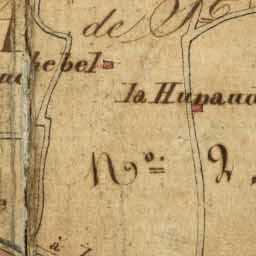 de
hebel
la Hupaud
N.º 2.
à